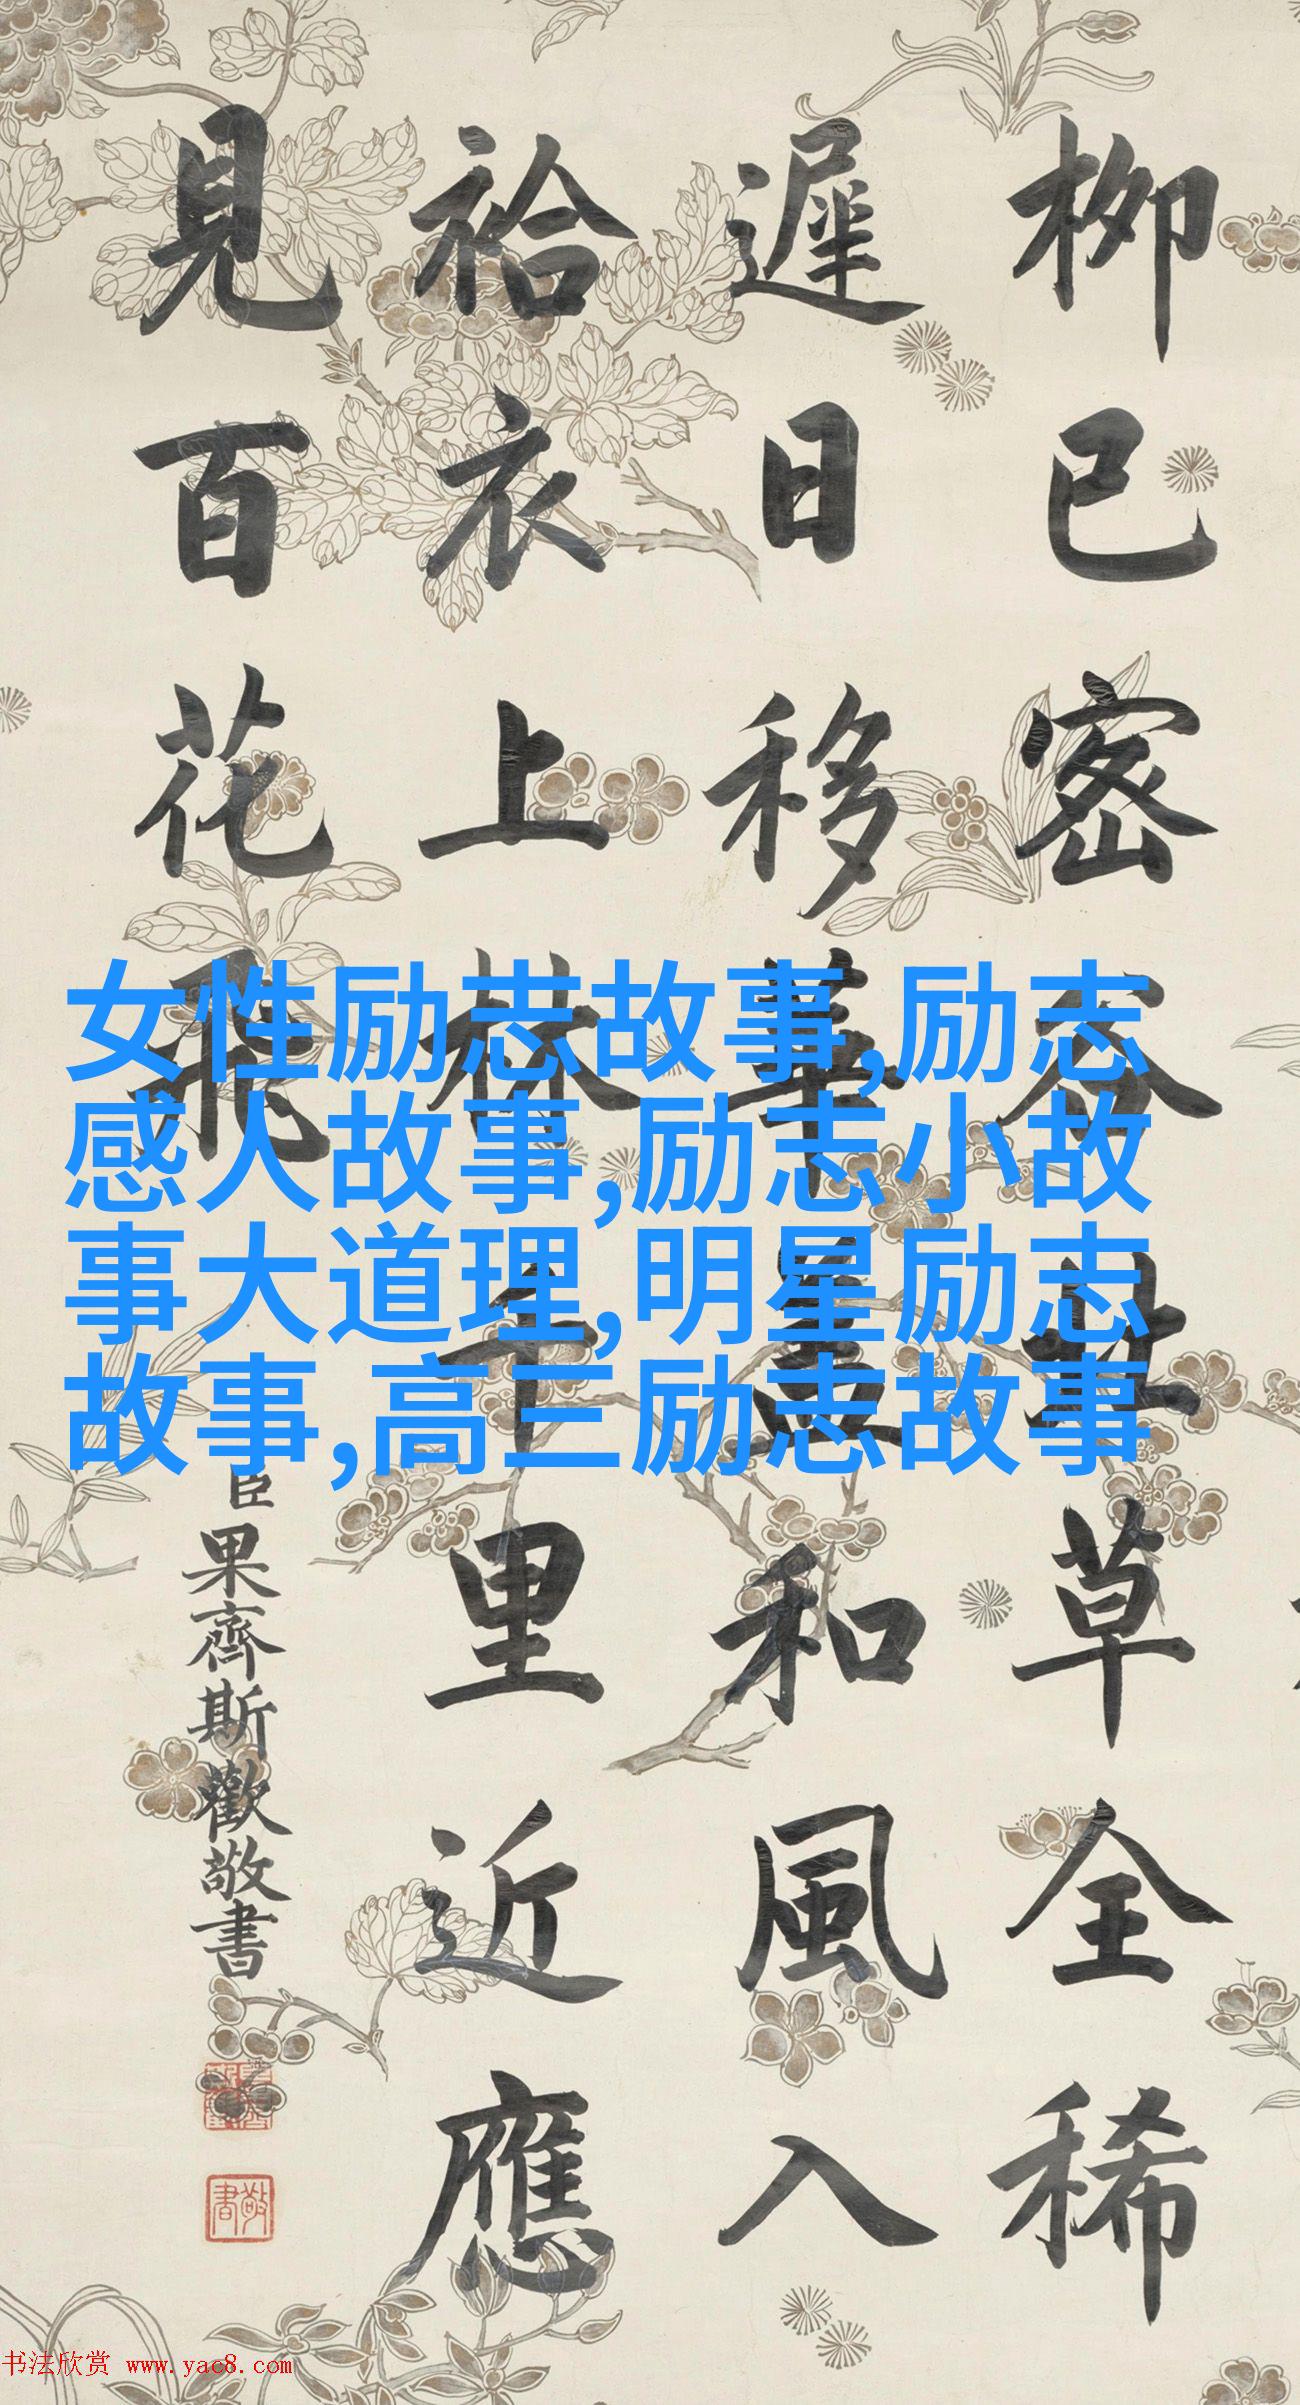 柳已密草全稀
遲日移華蓋和風入
袷衣上林千里近應
見百花飛
臣果齊斯歡敬書
敬書
女性励志故事,励志
感人故事,励志小故
事大道理,明星励志
故事,高三励志故事
书法欣赏 www.yac8.com